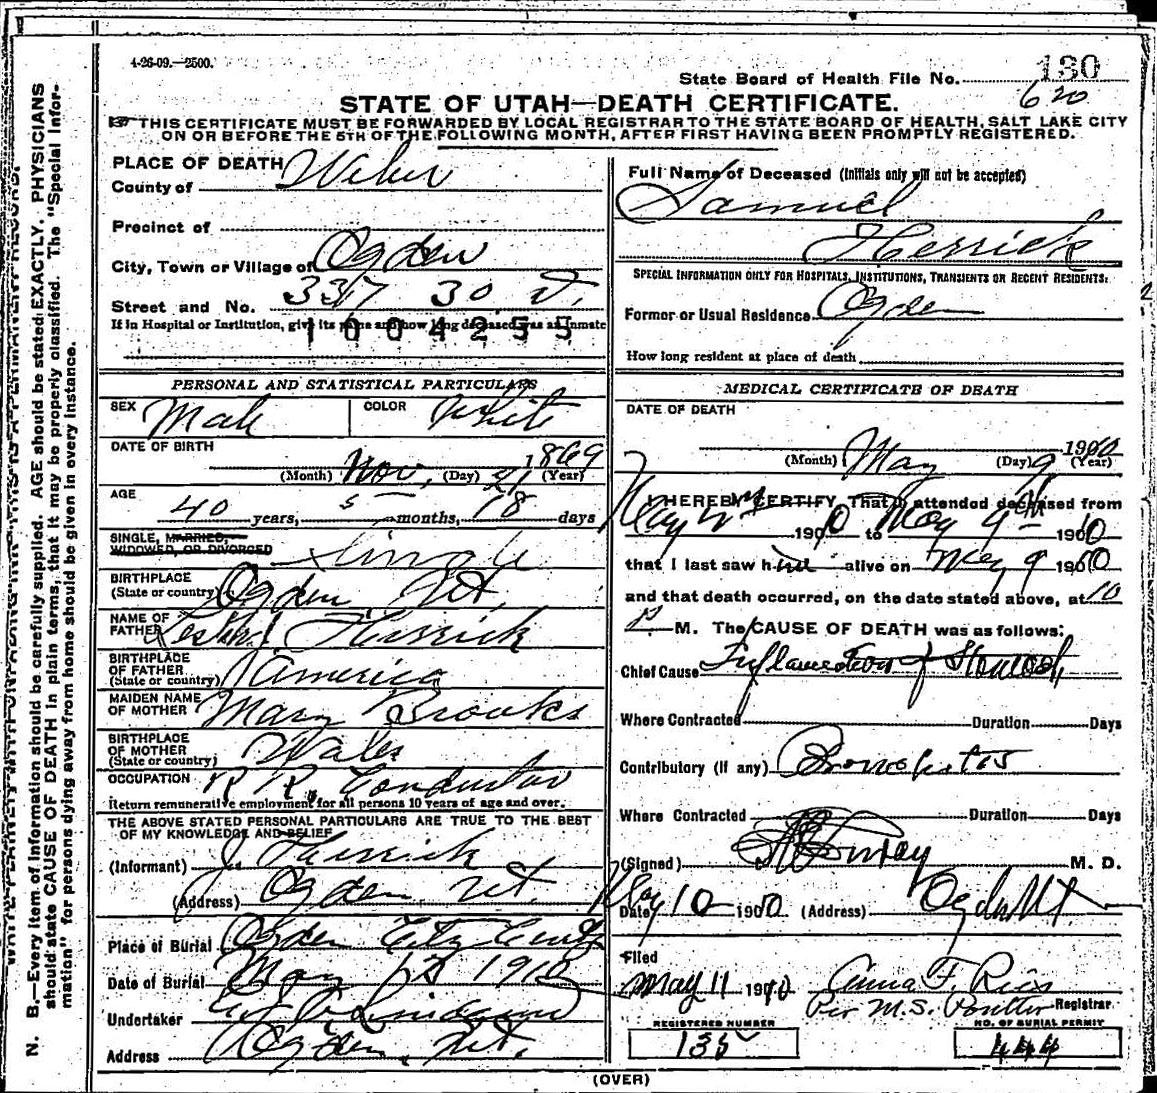 4-26-09.—2500.
State Board of Health File No. 130
620
STATE OF UTAH—DEATH CERTIFICATE.
THIS CERTIFICATE MUST BE FORWARDED BY LOCAL REGISTRAR TO THE STATE BOARD OF HEALTH, SALT LAKE CITY
ON OR BEFORE THE 5TH OF THE FOLLOWING MONTH, AFTER FIRST HAVING BEEN PROMPTLY REGISTERED.
PLACE OF DEATH
County of Weber
Precinct of
City, Town or Village of Ogden
Street and No. 337 30 St.
If in Hospital or Institution, give its name and how long deceased was an Inmate
1004255
PERSONAL AND STATISTICAL PARTICULARS
SEX Male COLOR White
DATE OF BIRTH
(Month) Nov, (Day) 21 (Year) 1869
AGE
40 years, 5 months, 18 days
SINGLE, MARRIED,
WIDOWED, OR DIVORCED Single
BIRTHPLACE
(State or country) Ogden, Ut.
NAME OF
FATHER Lester J Herrick
BIRTHPLACE
OF FATHER
(State or country) America
MAIDEN NAME
OF MOTHER Mary Brooks
BIRTHPLACE
OF MOTHER
(State or country) Wales
OCCUPATION R R Conductor
Return remunerative employment for all persons 10 years of age and over.
THE ABOVE STATED PERSONAL PARTICULARS ARE TRUE TO THE BEST
OF MY KNOWLEDGE AND BELIEF
(Informant) J. Herrick
(Address) Ogden Ut.
Place of Burial Ogden City
Date of Burial May 12 1910
Undertaker
Address Ogden, Ut.
Full Name of Deceased (Initials only will not be accepted)
Samuel
Herrick
SPECIAL INFORMATION ONLY FOR HOSPITALS, INSTITUTIONS, TRANSIENTS OR RECENT RESIDENTS:
Former or Usual Residence Ogden
How long resident at place of death
MEDICAL CERTIFICATE OF DEATH
DATE OF DEATH
(Month) May (Day) 9 (Year) 1910
I HEREBY CERTIFY That I attended deceased from
May 1910 to May 9th 1910
that I last saw him alive on May 9 1910
and that death occurred, on the date stated above, at 10
P. M. The CAUSE OF DEATH was as follows:
Chief Cause Inflamation of Stomach
Where Contracted Duration Days
Contributory (if any) Bronchitis
Where Contracted Duration Days
(Signed) M. D.
Date May 10 1910 (Address) Ogden Ut
Filed
May 11 1910 Anna F. Rios
Per M.S. Registrar
REGISTERED NUMBER
135
NO. OF BURIAL PERMIT
444
(OVER)
N. B.—Every item of Information should be carefully supplied. AGE should be stated EXACTLY. PHYSICIANS
should state CAUSE OF DEATH in plain terms, that it may be properly classified. The "Special Infor-
mation" for persons dying away from home should be given in every instance.